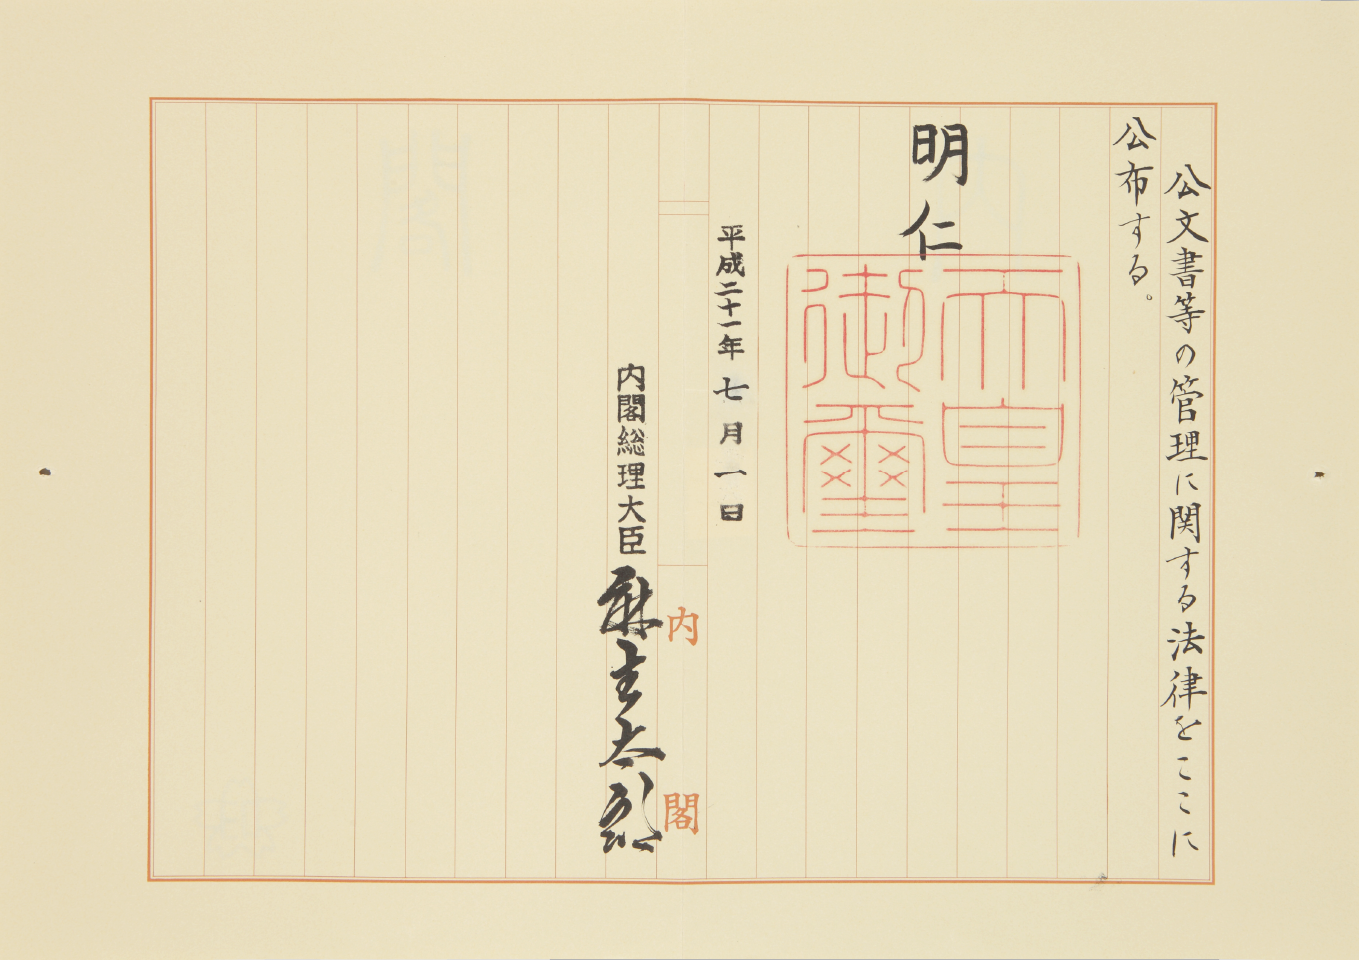 公文書等の管理に関する法律をここに
公布する。
明仁
天皇
御璽
平成二十一年七月一日
内閣
内閣総理大臣
麻生太郎